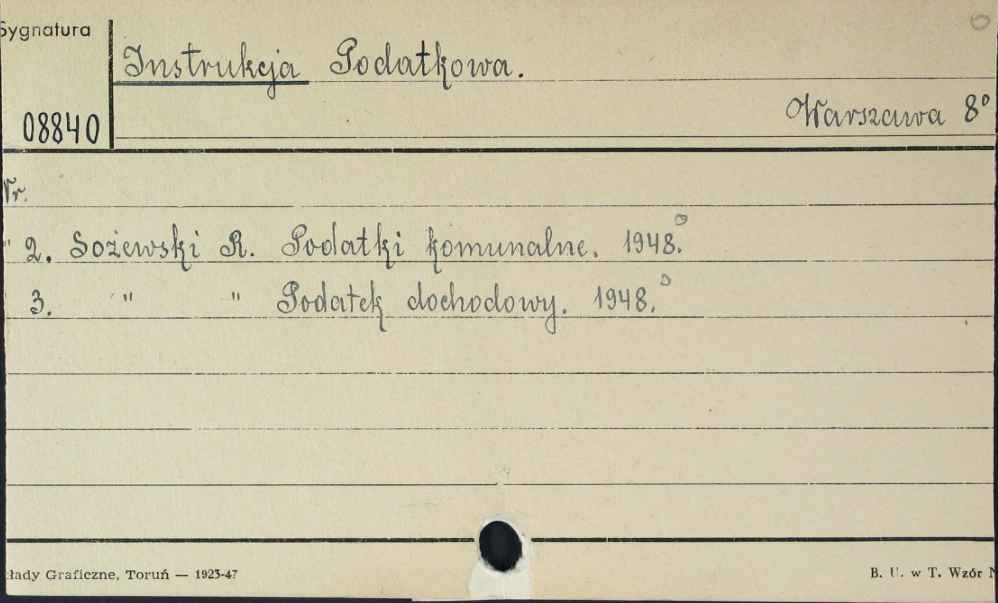 Sygnatura
Instrukcja Podatkowa.
Warszawa 8°
08840
Nr.
" 2. Sożewski R. Podatki komunalne. 1948.
3. " " Podatek dochodowy. 1948.
kłady Graficzne, Toruń — 1923-47
B. U. w T. Wzór N